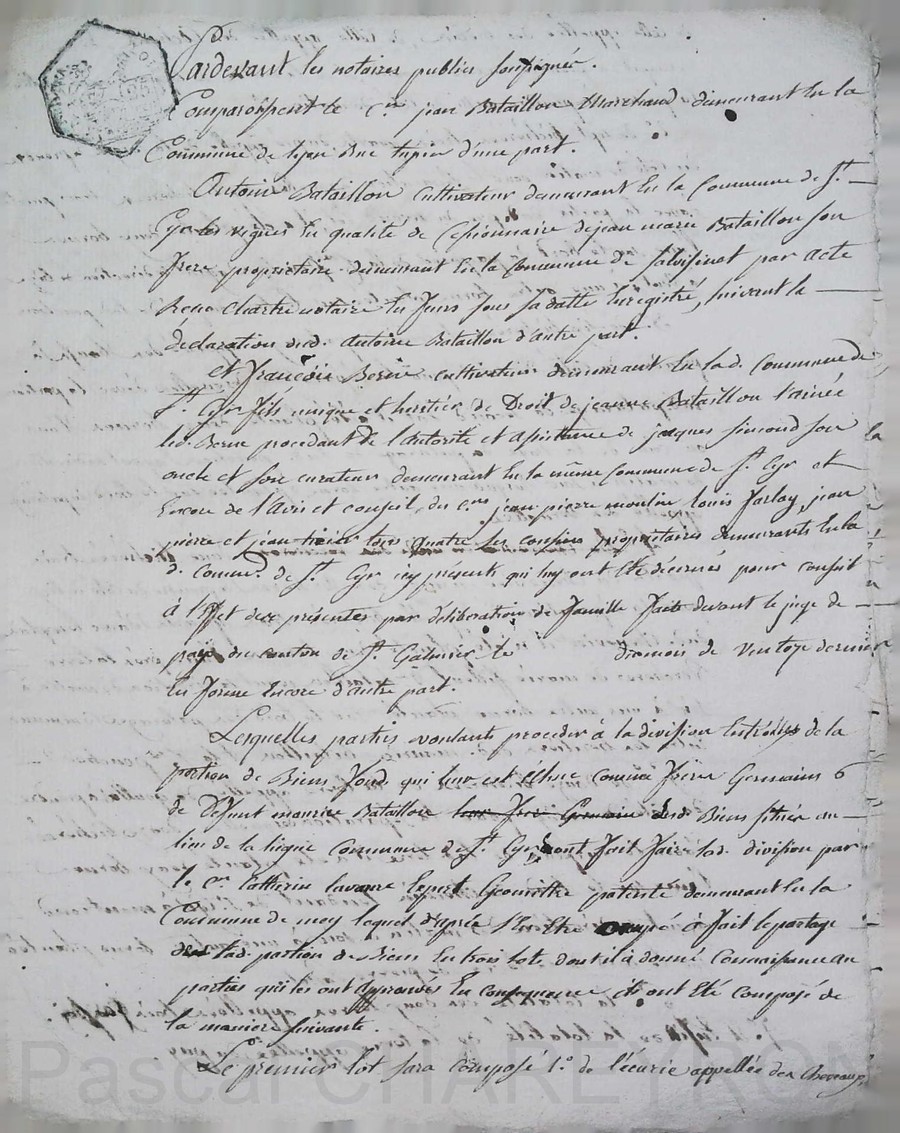 Pardevant les notaires publics soussignés.
Comparoissent le C.en jean Bataillon Marchand demeurant En la
Commune de lyon Rue tupin d'une part.
Antoine Bataillon Cultivateur demeurant En la Commune de S.t
Cyr les vignes En qualité de Cessionnaire de jean marie Bataillon son
frere propriétaire demeurant En la Commune de Salvisinet par acte
Recu Chartre notaire En feurs sous sa datte Enregistré, suivant la
déclaration dud. Antoine Bataillon d'autre part.
et françois Berne cultivateur demeurant En lad. Commune de
S.t Cyr fils unique et heritier de Droit de jeanne Bataillon l'ainée
led. Berne procedant de l'autorité et assistance de jacques simond son
oncle et son curateur demeurant En la même Commune de S.t Cyr et
Encore de l'Avis et conseil des C.ens jean pierre moulin louis farlay jean
pierre et jean tous quatre ses cousins propriétaires demeurants En la
d. comm.e de S.t Cyr icy présents qui luy ont été décernés pour conseil
à l'Effet des présentes par délibération de famille faite devant le juge de
paix du canton de S.t Galmier le du mois de Ventoze dernier
En forme Encore d'autre part.
Lesquelles parties voulants proceder à la division Entr'elles de la
portion de Biens fond qui leur est Echue comme frères Germains
de Défunt maurice Bataillon leur frere Germain desd. Biens situés au
lieu de la ligue commune de S.t Cyr ont fait faire lad. division par
le C.en Catherin Expert Géomètre patenté demeurant En la
Commune de lequel d'après à fait le partage
de lad. portion de Biens En trois lots dont il à donné Connaissance au
parties qui les ont approuvés En conséquence et ont Eté composé de
la maniere suivante.
Le premier lot sera Composé 1.o de l'écurie appellée des Chevaux
Pascal CHAREYRON